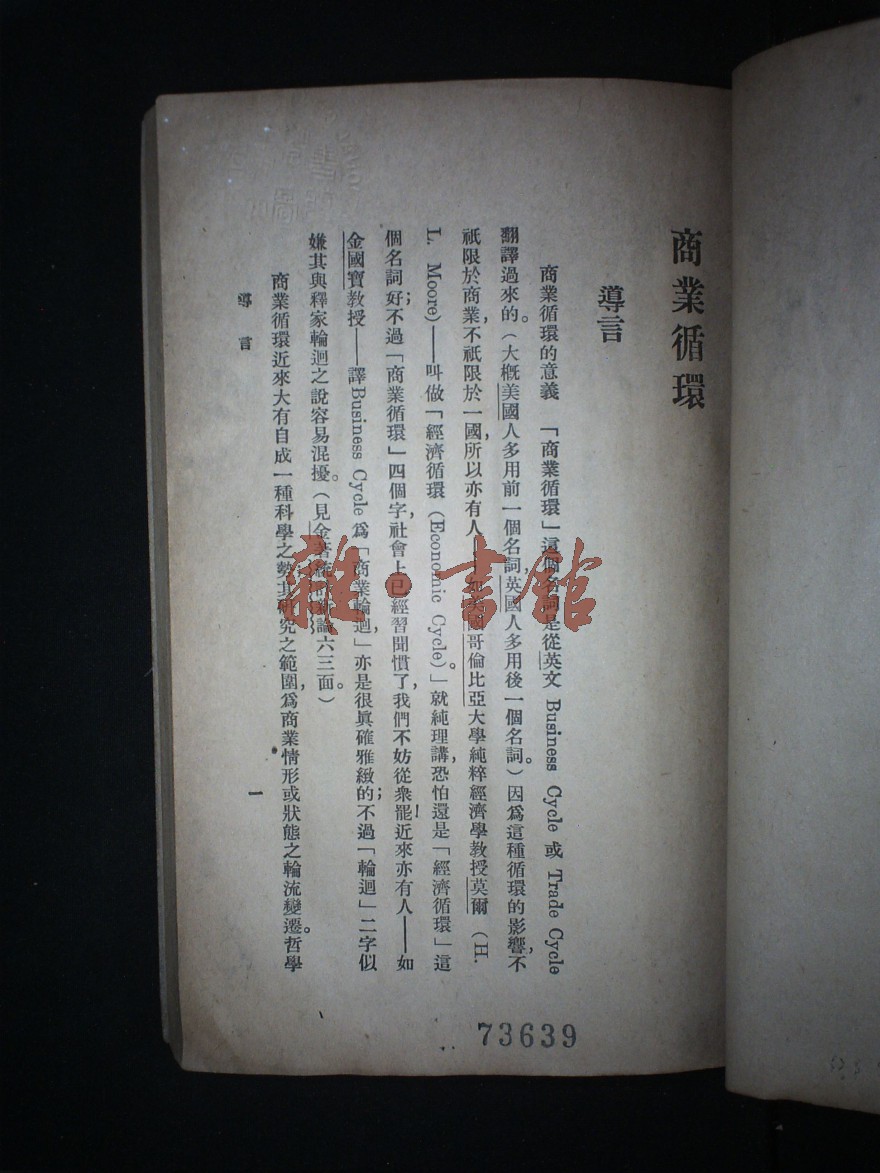 商業循環
導言
商業循環的意義　「商業循環」這個名詞是從英文 Business Cycle 或 Trade Cycle
翻譯過來的。(大概美國人多用前一個名詞,英國人多用後一個名詞。)因爲這種循環的影響,不
祇限於商業,不祇限於一國,所以亦有人——如美國哥倫比亞大學純粹經濟學教授莫爾 (H.
L. Moore)——叫做「經濟循環 (Economic Cycle)。」就純理講,恐怕還是「經濟循環」這
個名詞好;不過「商業循環」四個字,社會上已經習聞慣了,我們不妨從衆罷!近來亦有人——如
金國寶教授——譯 Business Cycle 爲「商業輪迴,」亦是很眞確雅緻的;不過「輪迴」二字似
嫌其與釋家輪迴之說容易混擾。(見金著統計新論六三面。)
商業循環近來大有自成一種科學之勢;其研究之範圍,爲商業情形或狀態之輪流變遷。哲學
導言
一
73639
雜·書館